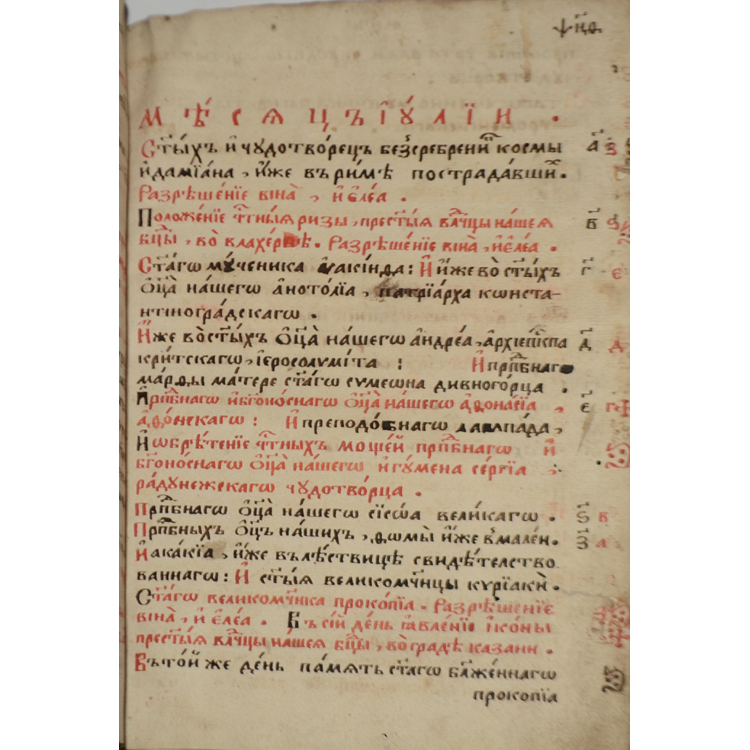 ѱн҃ѳ
МѢ́СЯЦЪ І҆У́ЛІЙ .
Ст҃ы́хъ и҆ чудотво́рецъ безсре́бреникъ космы̀ а҃
и҆ даміа́на , и҆́же въ ри́мѣ пострада́вших .
Разрѣше́нїе віна̀ , и҆ є҆ле́а .
Положе́нїе чⷭ҇тны́я ри́зы , прест҃ы́я влⷣчцы на́шея в҃
бцⷣы , во влахе́рнѣ . Разрѣше́нїе віна̀ , и҆ є҆ле́а .
Ст҃а́гѡ мꙋ́ченика ѵ҆аки́нѳа : И҆ и҆́же во ст҃ы́хъ г҃ є
ѻ҆ц҃а̀ на́шегѡ анато́лїа , патрїа́рха кѡнста-
нтіногра́дскагѡ .
И҆́же во ст҃ы́хъ ѻ҆ц҃а̀ на́шегѡ андре́а , а҆рхїепⷭ҇кпа д҃ д
кри́тскагѡ , і҆еросоли́мїта : И҆ прпⷣбнагѡ
ма́рѳы ма́тере ст҃а́гѡ сѵмеѡ́на дивного́рца .
Прпⷣбнагѡ и҆ бг҃оно́снагѡ ѻ҆ц҃а̀ на́шегѡ аѳана́сїа є҃
аѳѡ́нскагѡ : И҆ преподо́бнагѡ лампа́да ,
И҆ ѡ҆брѣте́нїе чⷭ҇тны́хъ моще́й прпⷣбнагѡ и҆
бг҃оно́снагѡ ѻ҆ц҃а̀ на́шегѡ и҆гу́мена се́ргїа
ра́дунежскагѡ чудотво́рца .
Прпⷣбнагѡ ѻ҆ц҃а̀ на́шегѡ сїсо́а вели́кагѡ . ѕ҃ в
Прпⷣбныхъ ѻ҆ц҃ъ на́шихъ , ѳѡмы̀ и҆́же в мале́и . з҃ а
И҆ ака́кїа , и҆́же в лѣ́ствицѣ свидѣ́тельство
ваннагѡ : И҆ ст҃ы́я великомч҃ницы кѵрїакѝ .
Ст҃а́гѡ великомч҃ника проко́пїа . Разрѣше́нїе
віна̀ , и҆ є҆ле́а . Въ се́й де́нь ꙗ҆вле́нїе і҆ко́ны
прест҃ы́я влⷣчцы на́шея бцⷣы , во гра́дѣ каза́ни .
Въ то́й же де́нь па́мять ст҃а́гѡ бл҃же́ннагѡ
проко́пїа